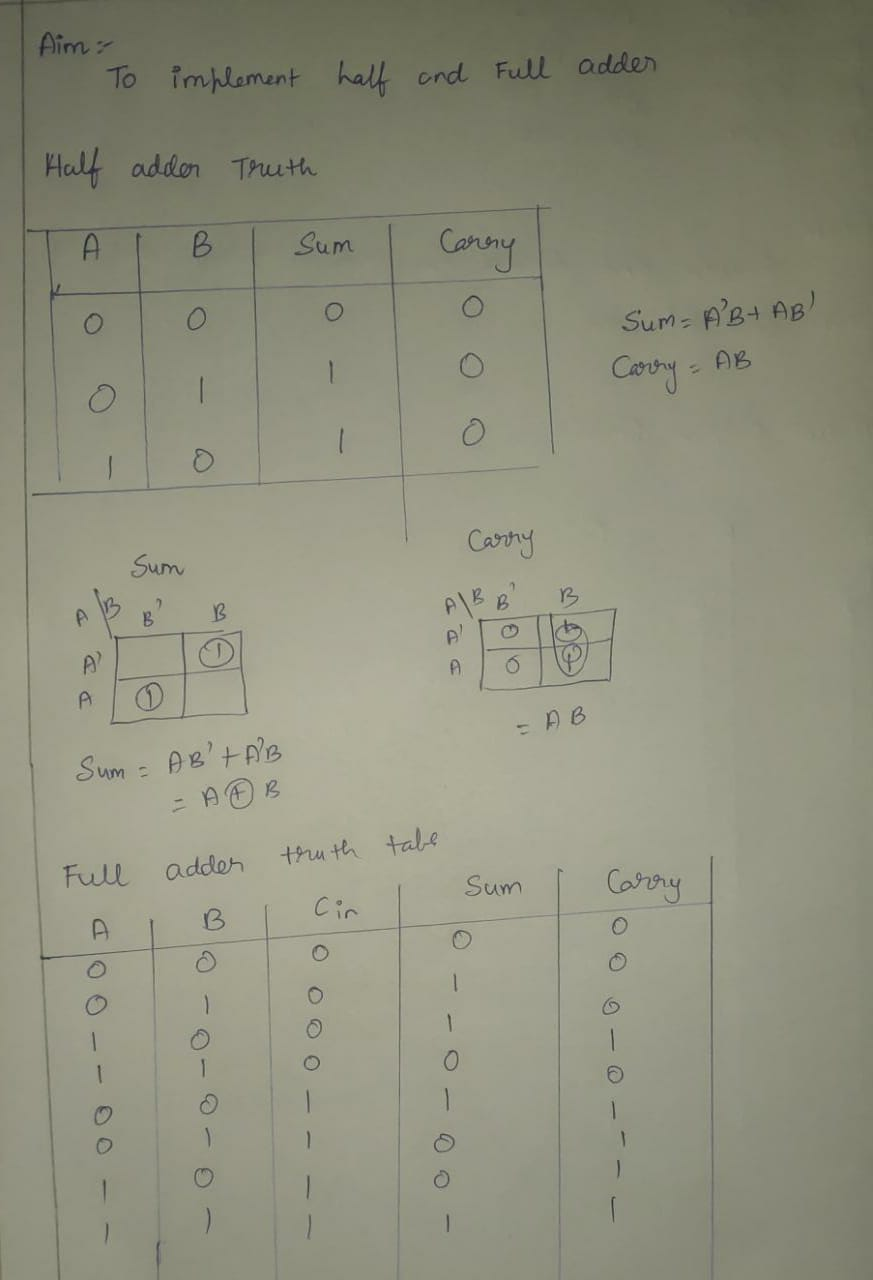 Aim :-
To implement half and Full adder
Half adder Truth
A B Sum Carry
0 0 0 0
0 1 1 0
1 0 1 0
Sum = A'B + AB'
Carry = AB
Sum
A\B B' B
A' 1
A 1
Sum = AB' + A'B
= A ⊕ B
Carry
A\B B' B
A' 0
A 0 1
= AB
Full adder truth table
A B Cin Sum Carry
0 0 0 0 0
0 1 0 1 0
1 0 0 1 0
1 1 0 0 1
0 0 1 1 0
0 1 1 0 1
1 0 1 0 1
1 1 1 1 1
1